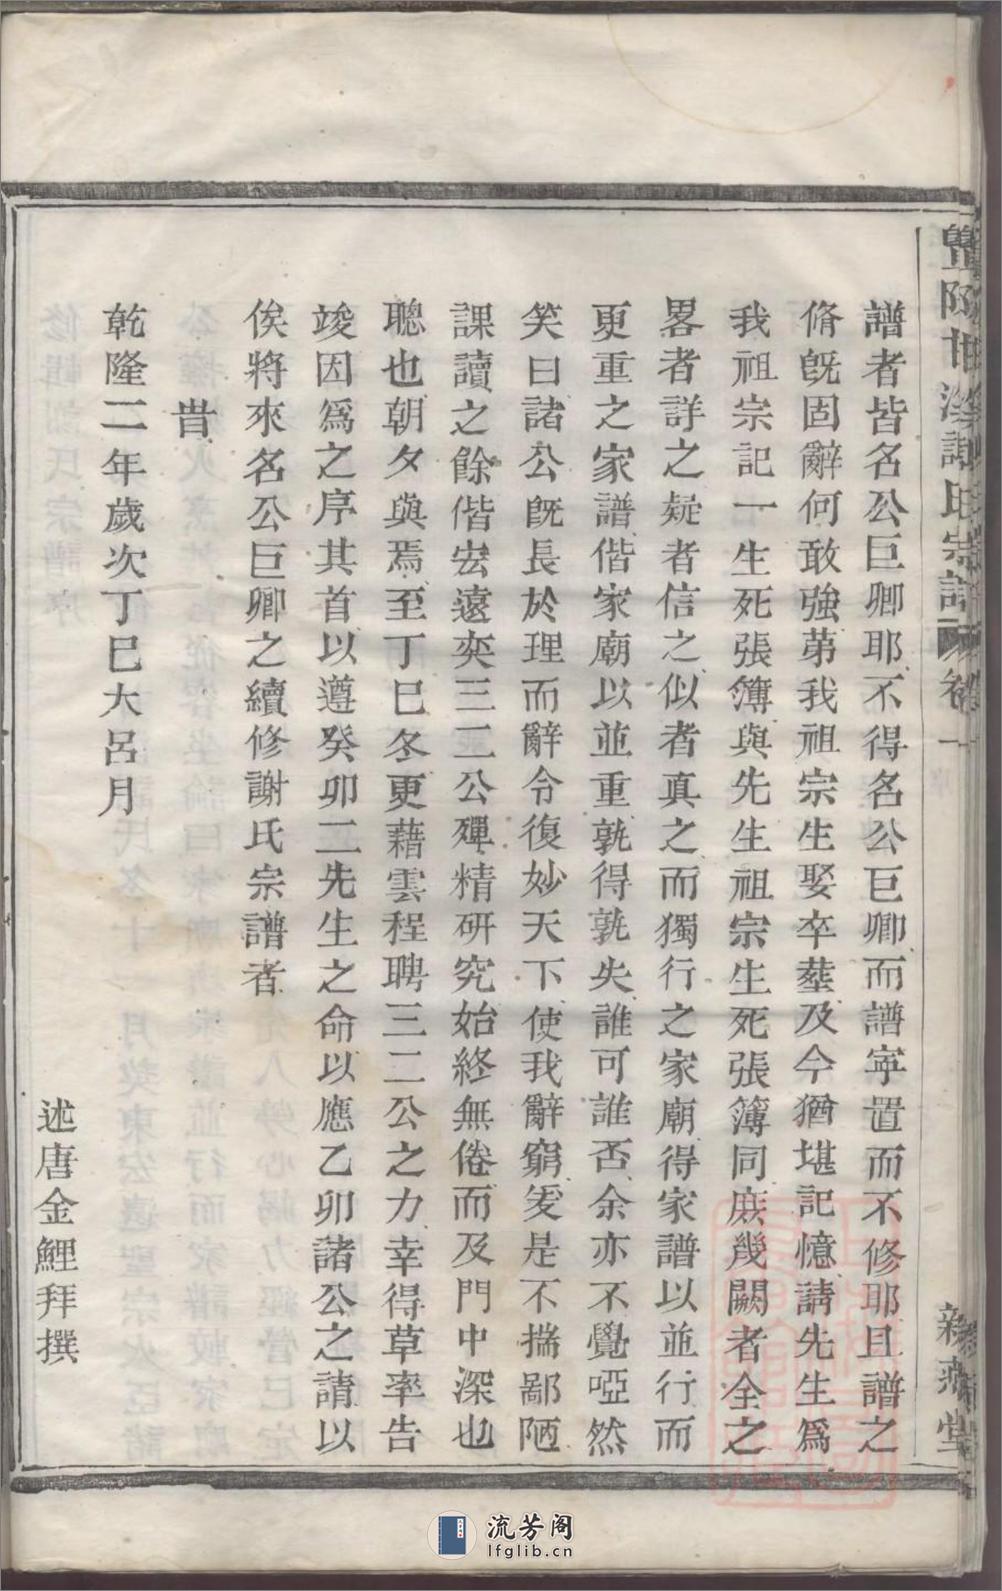 譜者皆名公巨卿耶不得名公巨卿而譜寧置而不修耶且譜之
脩旣固辭何敢強苐我祖宗生娶卒塟及今猶堪記憶請先生爲
我祖宗記一生死張簿與先生祖宗生死張簿同庶幾闕者全之
畧者詳之疑者信之似者真之而獨行之家廟得家譜以並行而
更重之家譜偕家廟以並重孰得孰失誰可誰否余亦不覺啞然
笑曰諸公旣長於理而辭令復妙天下使我辭窮爰是不揣鄙陋
課讀之餘偕宏遠奕三二公殫精研究始終無倦而及門中深也
聰也朝夕與焉至丁巳冬更藉雲程聘三二公之力幸得草率告
竣因爲之序其首以遵癸卯二先生之命以應乙卯諸公之請以
俟將來名公巨卿之續修謝氏宗譜者
昔
乾隆二年歲次丁巳大呂月
述唐金鯉拜撰
謝氏宗譜
卷一
堂
流芳阁
lfglib.cn